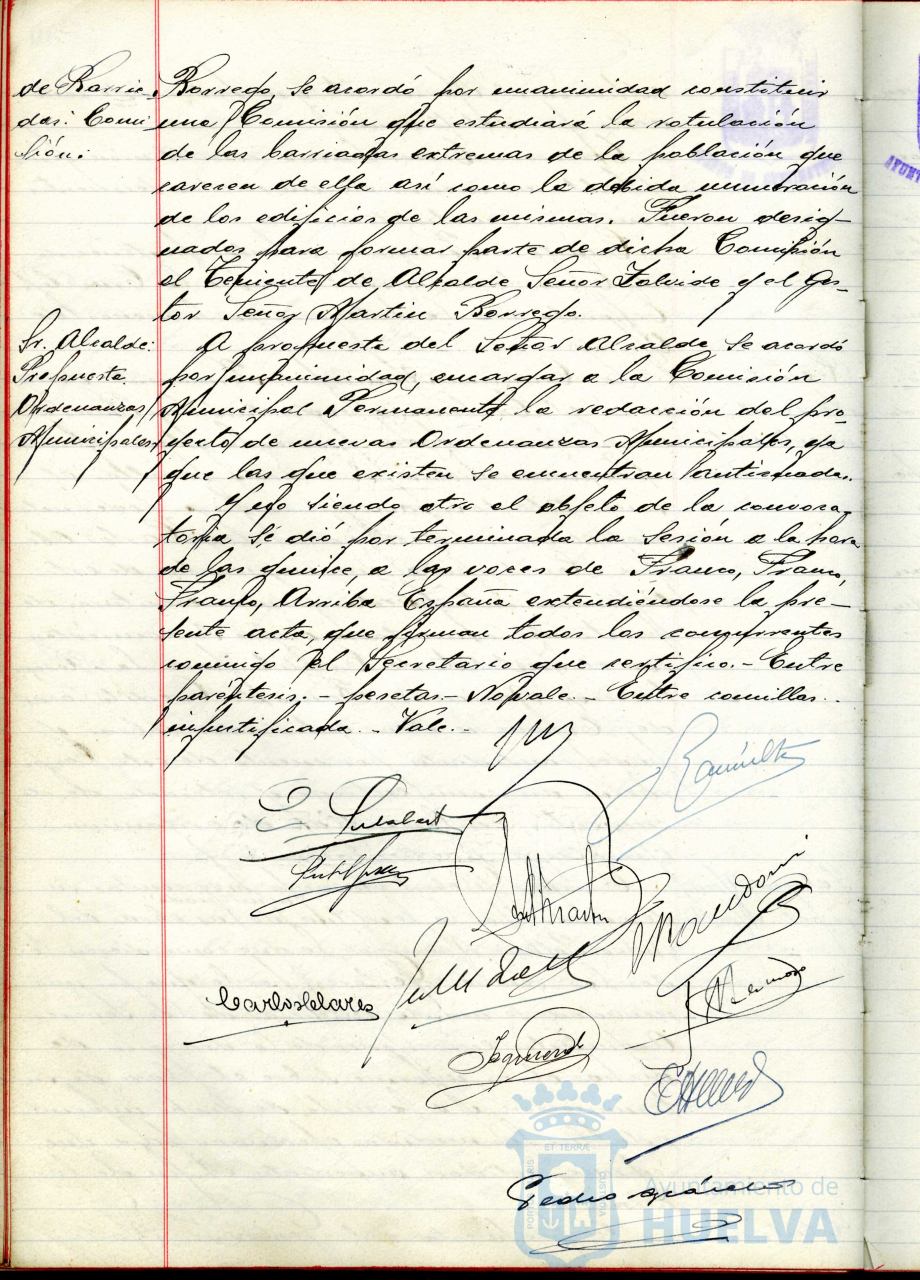 de Barria-
das: Comi
sión:
Borrego, se acordó por unanimidad constituir
una Comisión que estudiará la rotulación
de las barriadas extremas de la población que
carecen de ella así como la debida numeración
de los edificios de las mismas. Fueron desig-
nados para formar parte de dicha Comisión
el Teniente de Alcalde Señor y el Ges-
tor Señor Martin Borrego.
Sr. Alcalde:
Propuesta
Ordenanzas
Municipales
A propuesta del Señor Alcalde se acordó
por unanimidad, encargar a la Comisión
Municipal Permanente la redacción del pro-
yecto de nuevas Ordenanzas Municipales, ya
que las que existen se encuentran anticuadas.
Y no siendo otro el objeto de la convoca-
toria se dió por terminada la sesión a la hora
de las quince, a las voces de Franco, Franco,
Franco, Arriba España extendiéndose la pre-
sente acta, que firman todos los concurrentes
conmigo el Secretario que certifico.- Entre
paréntesis: - pesetas.- No vale. - Entre comillas. -
injustificada. - Vale.-
Izquierdo
Pedro
ET TERRÆ
Ayuntamiento de
HUELVA